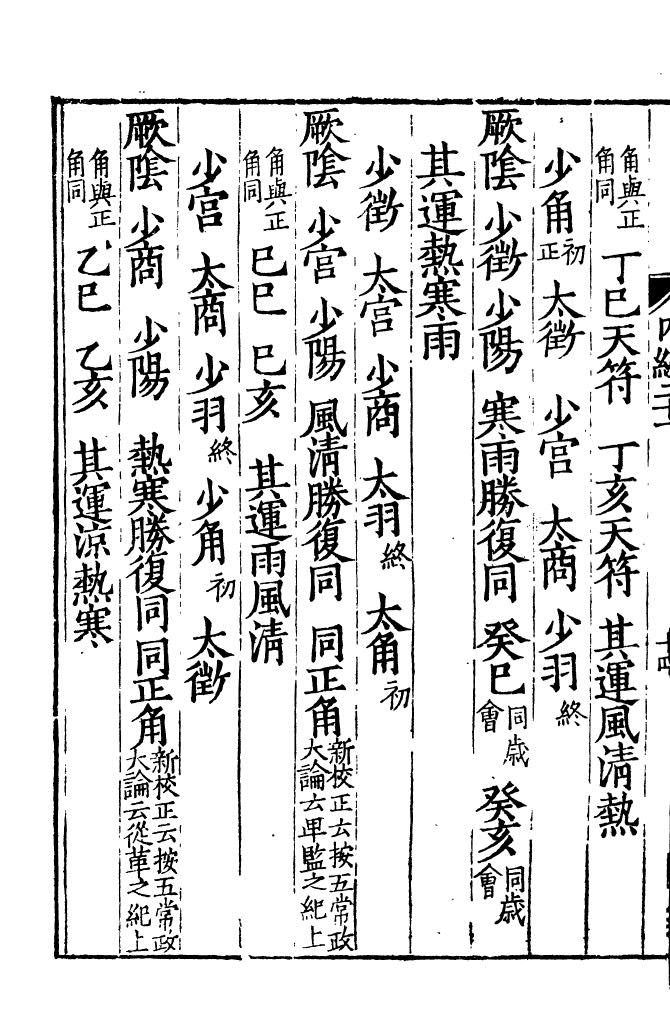 角與正角同 丁巳天符 丁亥天符 其運風清熱
少角初正 太徵 少宮 太商 少羽終
厥陰 少徵 少陽 寒雨勝復同 癸巳同歲會 癸亥同歲會
其運熱寒雨
少徵 太宮 少商 太羽終 太角初
厥陰 少宮 少陽 風清勝復同 同正角新校正云按五常政大論云卑監之紀上
角與正角同 巳巳 巳亥 其運雨風清
少宮 太商 少羽終 少角初 太徵
厥陰 少商 少陽 熱寒勝復同 同正角新校正云按五常政大論云從革之紀上
角與正角同 乙巳 乙亥 其運涼熱寒